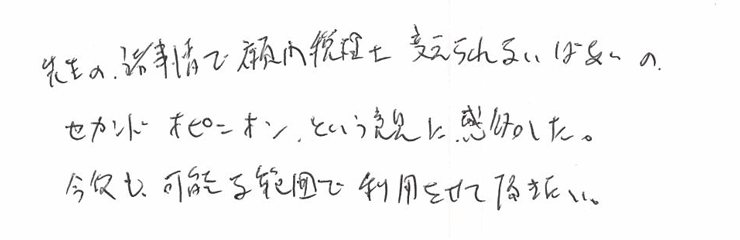 先生の、諸事情で顧問税理士変えられないばあいの、
セカンドオピニオン、という意見に感動した。
今後も、可能な範囲で利用させて頂きたい。